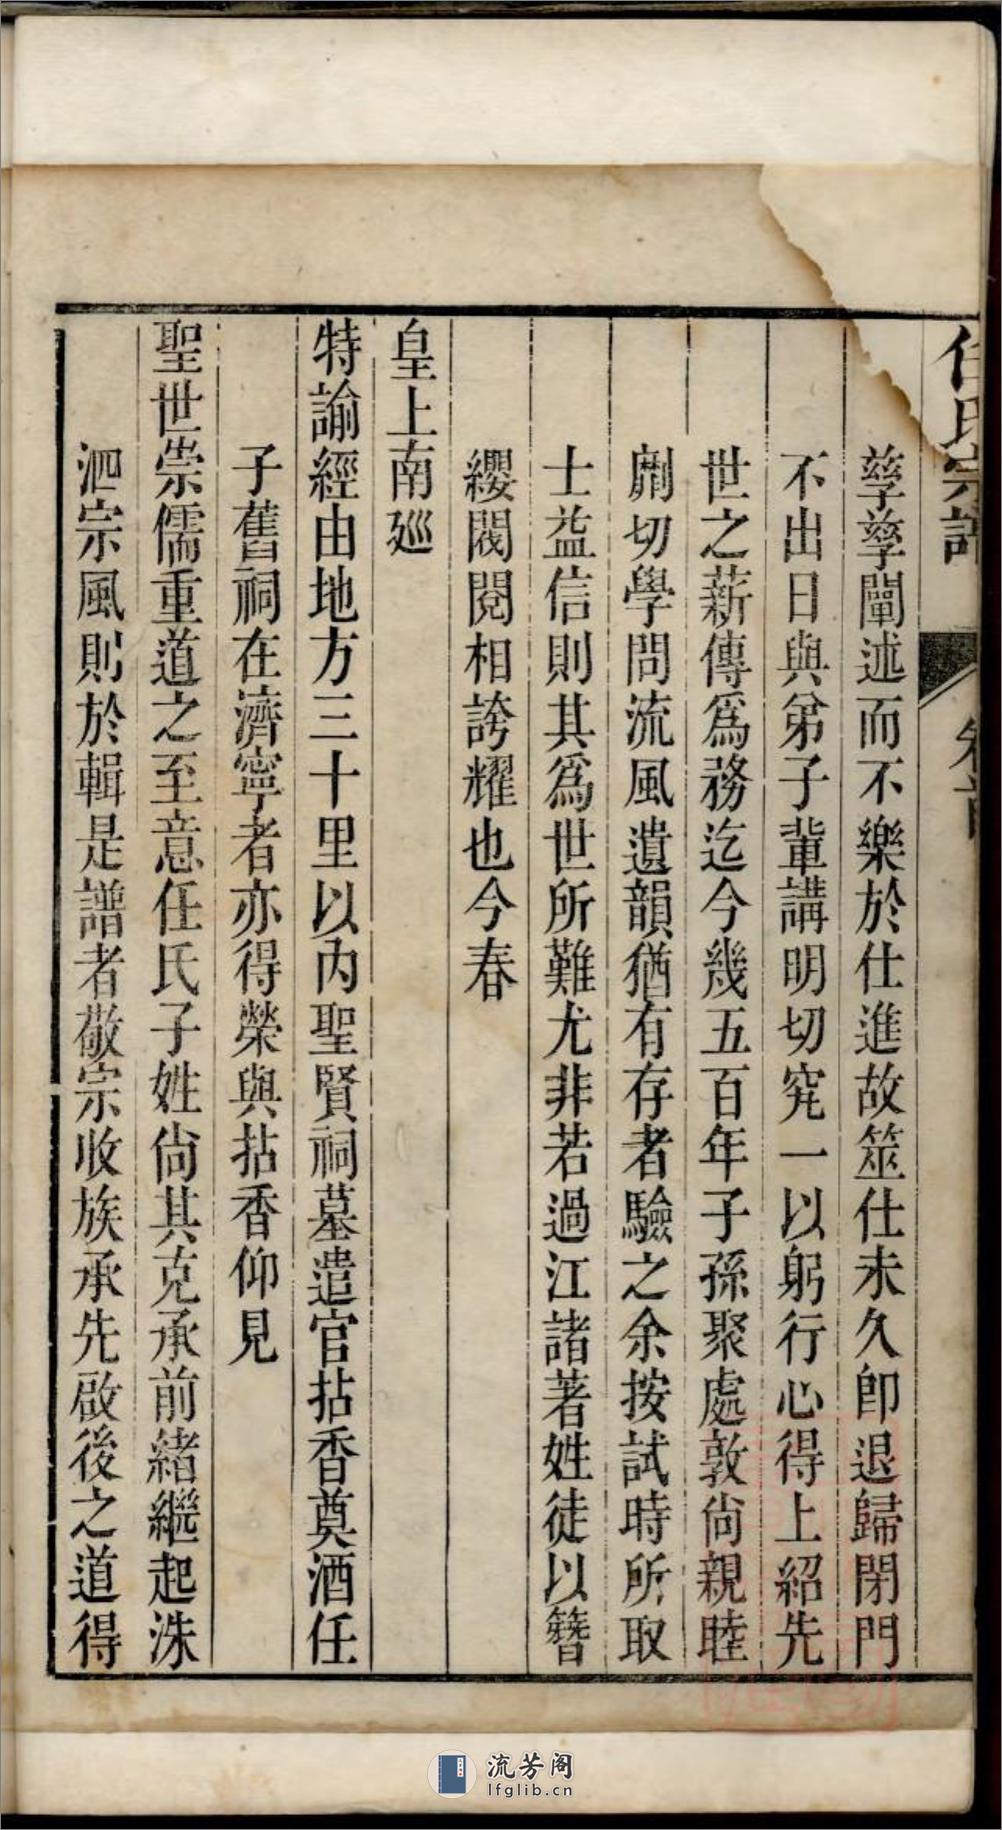 任氏宗譜
卷首
孳孳闡述而不樂於仕進故筮仕未久卽退歸閉門
不出日與弟子輩講明切究一以躬行心得上紹先
世之薪傳爲務迄今幾五百年子孫聚處敦尙親睦
劘切學問流風遺韻猶有存者驗之余按試時所取
士益信則其爲世所難尤非若過江諸著姓徒以簪
纓閥閱相誇耀也今春
皇上南廵
特諭經由地方三十里以內聖賢祠墓遣官拈香奠酒任
子舊祠在濟寧者亦得榮與拈香仰見
聖世崇儒重道之至意任氏子姓尙其克承前緒繼起洙
泗宗風則於輯是譜者敬宗收族承先啟後之道得
流芳阁
lfglib.cn